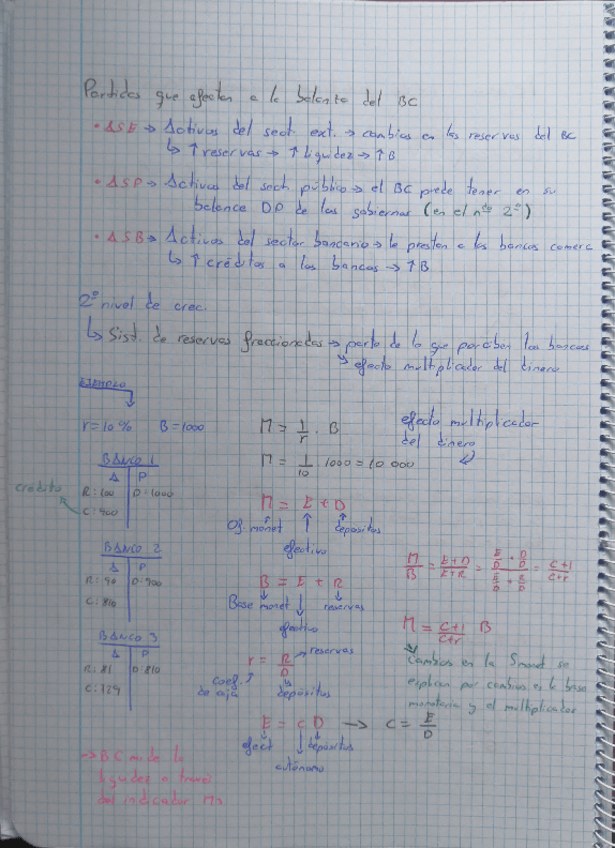 Partidas que afectan a la balanza del BC
• ΔSE → Activos del sect. ext. → cambios en las reservas del BC
↳ ↑ reservas → ↑ liquidez → ↑B
• ΔSP → Activos del sect. público → el BC puede tener en su
balance DP de los gobiernos (en el 2º)
• ΔSB → Activos del sector bancario → le prestan a los bancos comerc
↳ ↑ créditos a los bancos → ↑B
2º nivel de crec.
↳ Sist. de reservas fraccionadas → parte de lo que perciben los bancos
↘ efecto multiplicador del dinero
EJEMPLO
r = 10 % B = 1000 M = 1/r · B efecto multiplicador
del dinero
BANCO 1
A P
R: 100 D: 1000
C: 900
crédito
M = 1/10 1000 = 10 000
M = E + D
Of. monet efectivo depósitos
BANCO 2
A P
R: 90 D: 900
C: 810
B = E + R
Base monet efectivo reservas
M/B = E+D/E+R = E/D + D/D / E/D + R/D = c+1/c+r
M = c+1/c+r B
Cambios en la Smonet se
explican por cambios en la base
monetaria y el multiplicador
BANCO 3
A P
R: 81 D: 810
C: 729
r = R/D → reservas
coef. de caja depósitos
E = c D → c = E/D
efect autónomo depósitos
→ BC mide la
liquidez a través
del indicador M3